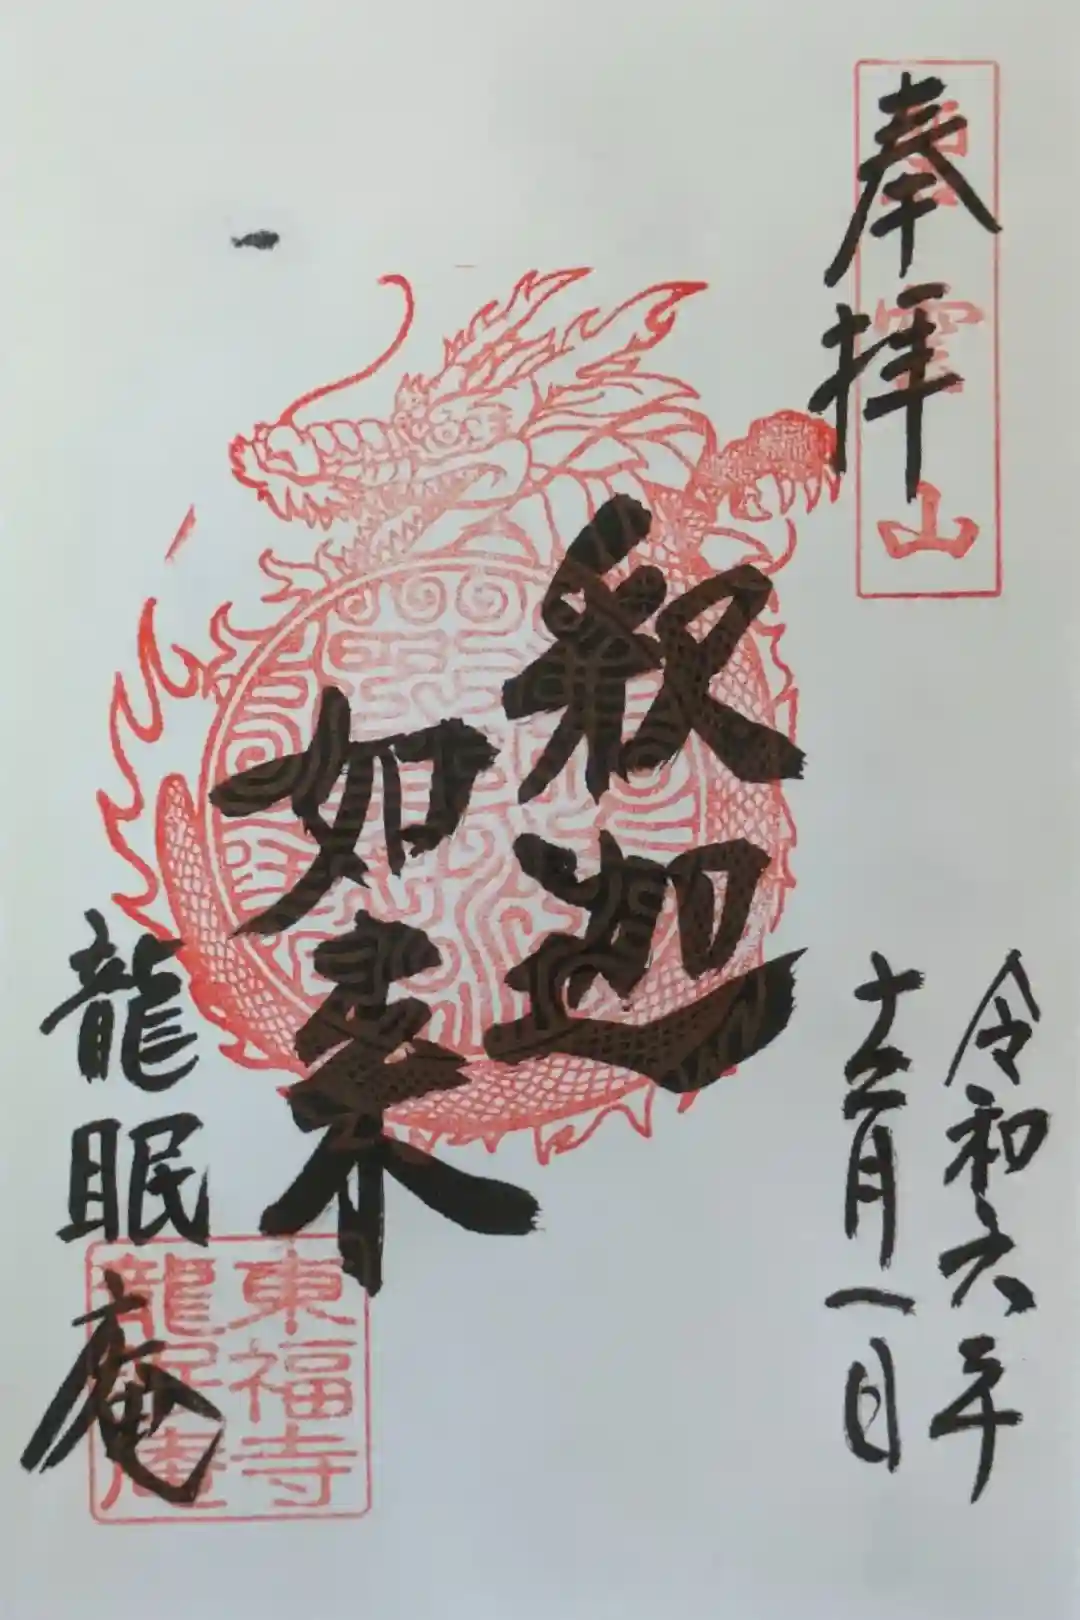 奉拝
令和六年
十二月一日
釈迦
如来
龍眠庵
山
東福寺
龍眠庵